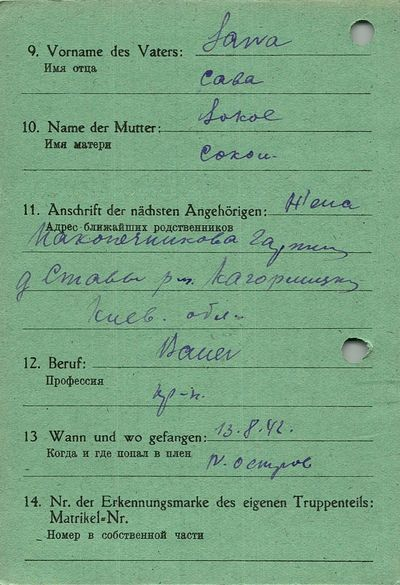 9. Vorname des Vaters: Sawa
Имя отца
Сава
10. Name der Mutter: Sokol
Имя матери
Сокол
11. Anschrift der nächsten Angehörigen: Жена
Адрес ближайших родственников
Наконечникова
д Ставы р-н. Кагорлицк
Киев. обл-
12. Beruf: Bauer
Профессия
кр-н.
13 Wann und wo gefangen: 13.8.42.
Когда и где попал в плен
остров
14. Nr. der Erkennungsmarke des eigenen Truppenteils:
Matrikel-Nr.
Номер в собственной части